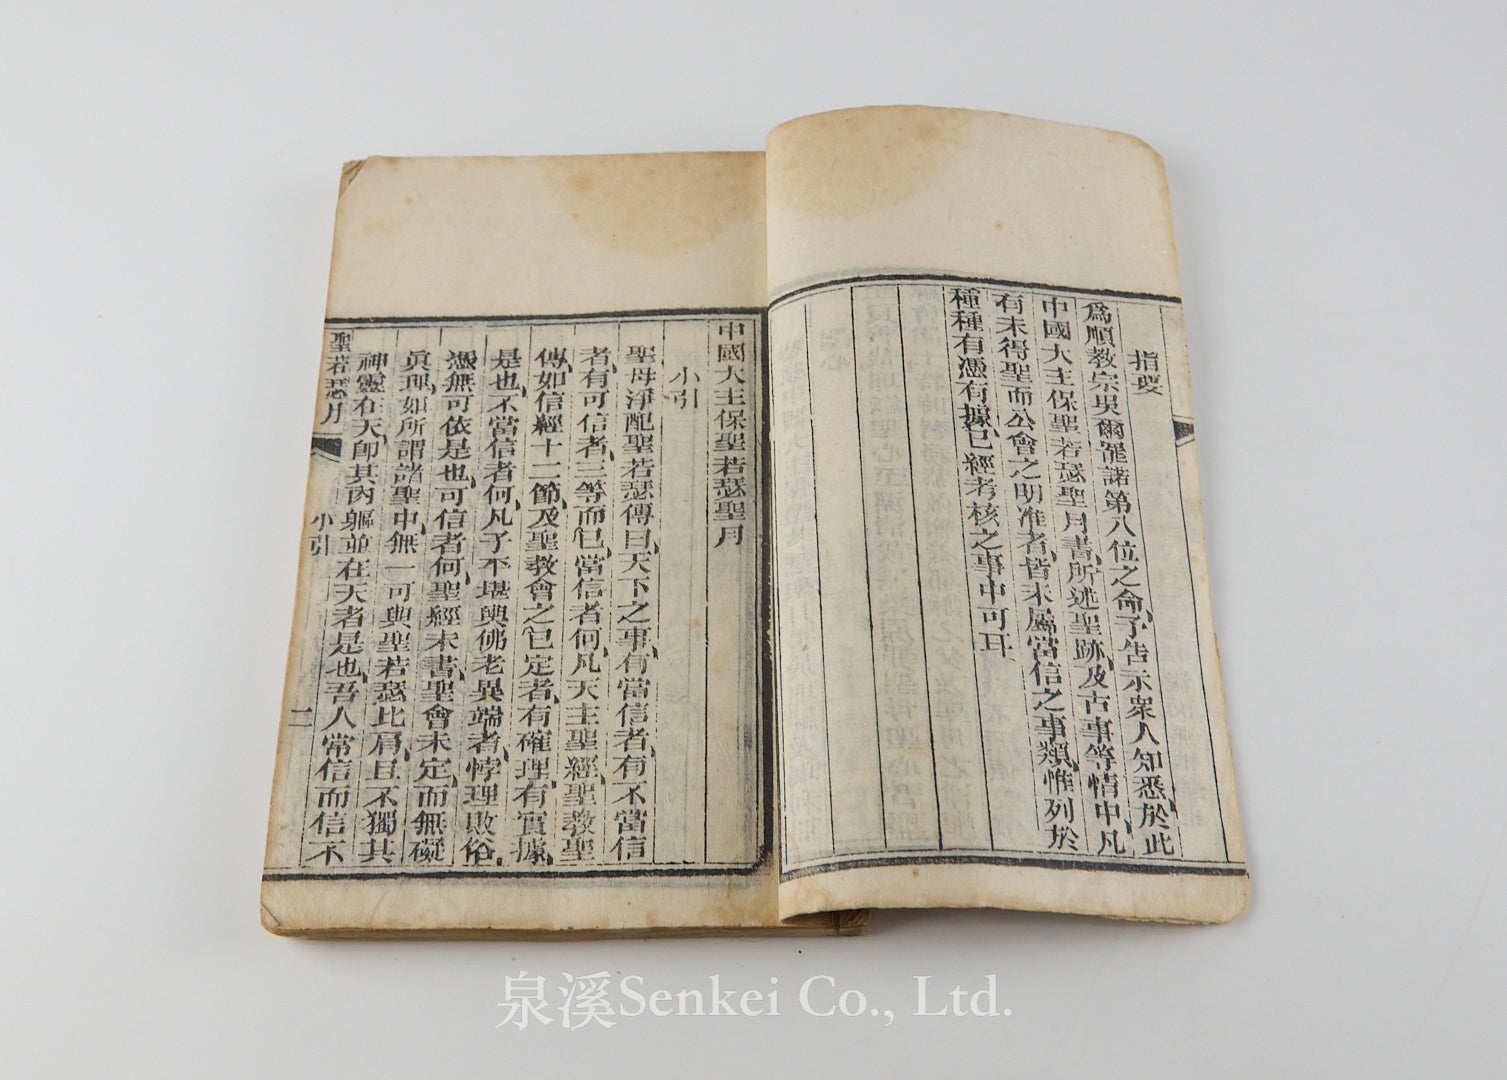 指要
爲順教宗吳爾罷諾第八位之命、予告示衆人知悉、於此
中國大主保聖若瑟聖月書、所述聖跡、及古事等情中、凡
有未得聖而公會之明准者、皆未屬當信之事類、惟列於
種種有憑有據、已經考核之事中可耳
中國大主保聖若瑟聖月
小引
聖母淨配聖若瑟傳曰、天下之事、有當信者、有不當信
者、有可信者、三等而已、當信者何、凡天主聖經、聖教聖
傳、如信經十二節、及聖教會之已定者、有確理、有實據、
是也、不當信者何、凡子不堪與佛老異端者、悖理敗俗、
憑無可依是也、可信者何、聖經未書、聖會未定、而無礙
眞理、如所謂諸聖中、無一可與聖若瑟比肩、且不獨其
神靈在天、卽其肉軀並在天者是也、吾人常信而信不
聖若瑟月
小引
二
泉溪Senkei Co., Ltd.